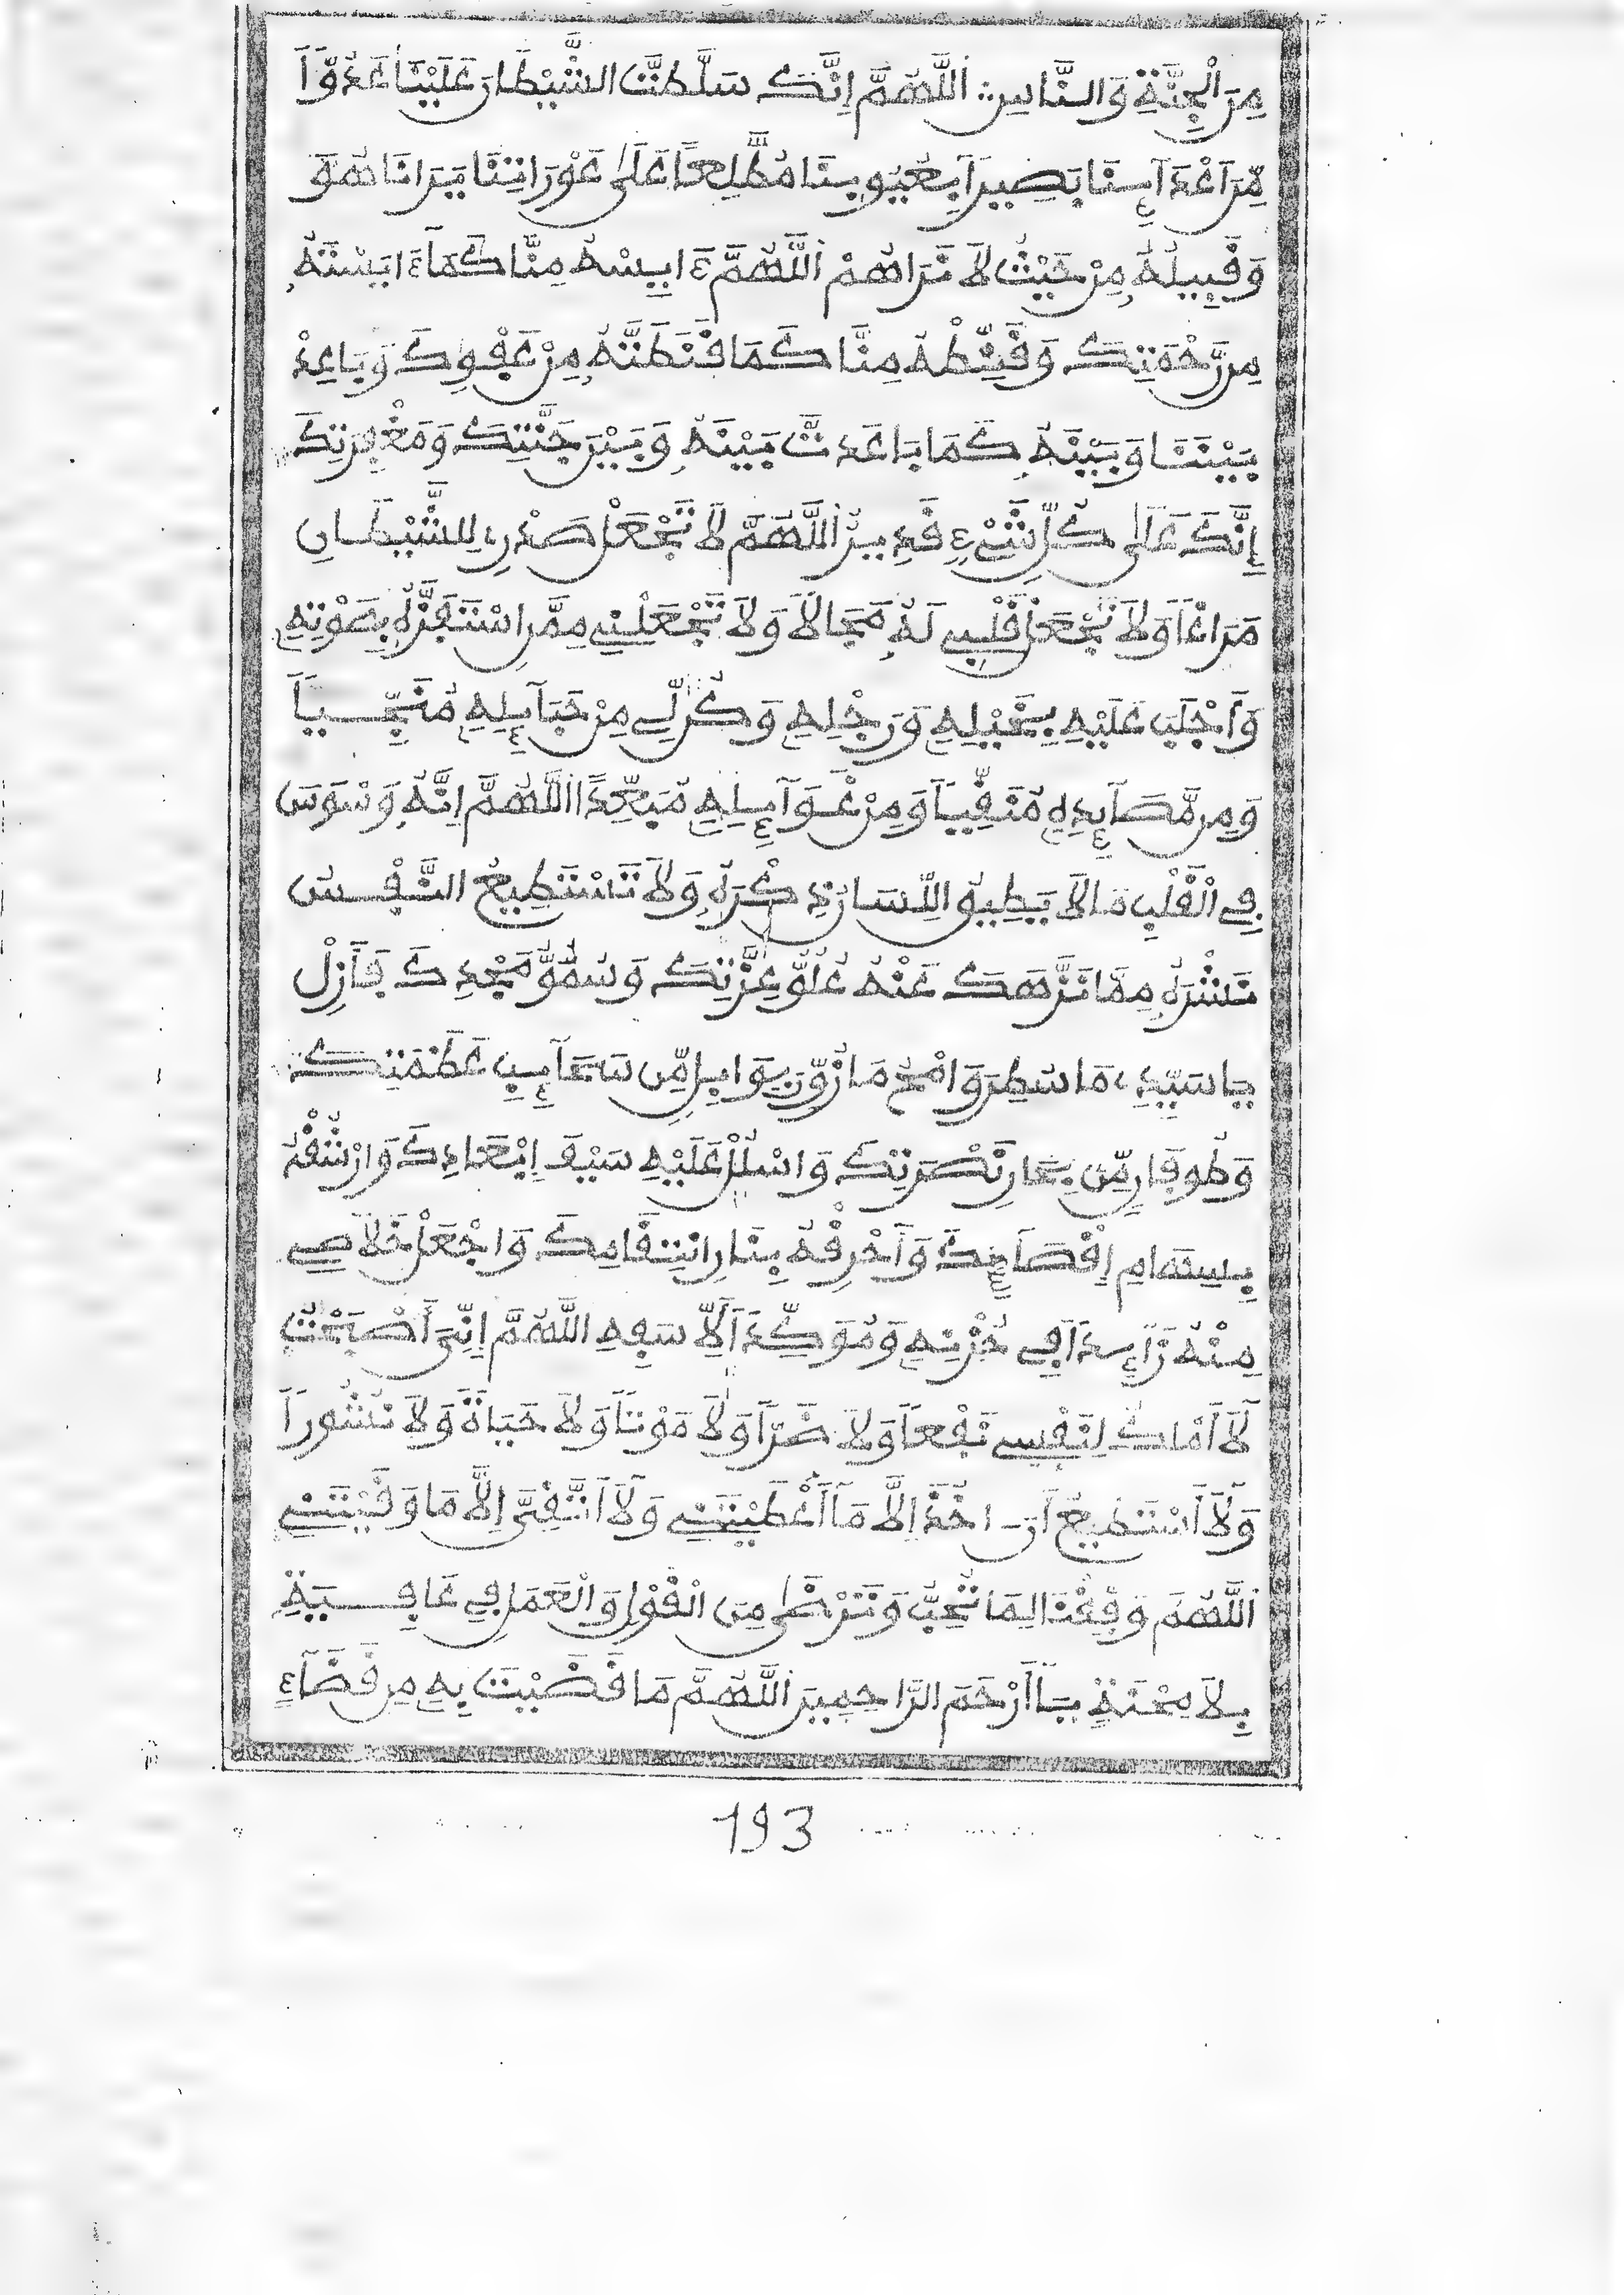 مِنَ الْجِنَّةِ وَالنَّاسِ ۞ اَللَّهُمَّ إِنَّكَ سَلَّطْتَ الشَّيْطَانَ عَلَيْنَا عَدُوّاً
مِّنَ اَعْدَآئِنَا بَصِيراً بِعُيُوبِنَا مُطَّلِعاً عَلَى عَوْرَاتِنَا يَرَانَا هُوَ
وَقَبِيلُهُ مِنْ حَيْثُ لاَ نَرَاهُمْ اَللَّهُمَّ ءَايِسْهُ مِنَّا كَمَا ءَايَسْتَهُ
مِن رَّحْمَتِكَ وَقَنِّطْهُ مِنَّا كَمَا قَنَّطْتَهُ مِنْ عَفْوِكَ وَبَاعِدْ
بَيْنَنَا وَبَيْنَهُ كَمَا بَاعَدتَّ بَيْنَهُ وَبَيْنَ جَنَّتِكَ وَمَغْفِرَتِكَ
إِنَّكَ عَلَى كُلِّ شَيْءٍ قَدِيرٌ اَللَّهُمَّ لاَ تَجْعَلْ صَدْرِي لِلشَّيْطَانِ
مَرَاغاً وَلاَ تَجْعَلْ قَلْبِي لَهُ مَجَالاً وَلاَ تَجْعَلْنِي مِمَّنِ اسْتَفَزَّهُ بِصَوْتِهِ
وَأَجْلَبَ عَلَيْهِ بِخَيْلِهِ وَرَجْلِهِ وَكُن لِّي مِنْ حَبَآئِلِهِ مُنَجِّياً
وَمِن مَّصَآئِدِهِ مُنَقِّياً وَمِنْ غَوَآئِلِهِ مُبَعِّداً اللَّهُمَّ إِنَّهُ وَسْوَسَ
فِي الْقَلْبِ مَا لاَ يَطِيقُ اللِّسَانُ ذِكْرَهُ وَلاَ تَسْتَطِيعُ النَّفْسُ
نَشْرَهُ مِمَّا نَزَّهَكَ عَنْهُ عُلُوُّ عِزَّتِكَ وَسُمُوُّ مَجْدِكَ فَأَزِلْ
يَا سَيِّدِي مَا سَطَرَ وَامْحُ مَا زَوَّرَ بِوَابِلٍ مِّن سَحَآئِبِ عَظَمَتِكَ
وَطُوفَانٍ مِّن بِحَارِ نُصْرَتِكَ وَاسْلُلْ عَلَيْهِ سَيْفَ إِبْعَادِكَ وَارْشُقْهُ
بِسِهَامِ إِقْصَآئِكَ وَأَحْرِقْهُ بِنَارِ انْتِقَامِكَ وَاجْعَلْ خَلاَصِي
مِنْهُ زَآئِداً فِي حُزْنِهِ وَمُؤَكِّداً لِّأَسَفِهِ اللَّهُمَّ إِنِّي أَصْبَحْتُ
لاَ أَمْلِكُ لِنَفْسِي نَفْعاً وَلاَ ضَرّاً وَلاَ مَوْتاً وَلاَ حَيَاةً وَلاَ نُشُوراً
وَلاَ أَسْتَطِيعُ أَن اخُذَ إِلاَّ مَآ أَعْطَيْتَنِي وَلاَ اَتَّقِيَ إِلاَّ مَا وَقَيْتَنِي
اَللَّهُمَّ وَفِّقْنَا لِمَا تُحِبُّ وَتَرْضَى مِنَ الْقَوْلِ وَالْعَمَلِ فِي عَافِيَةٍ
بِلاَ مِحْنَةٍ يَآ أَرْحَمَ الرَّاحِمِينَ اَللَّهُمَّ مَا قَضَيْتَ بِهِ مِن قَضَآءٍ
193